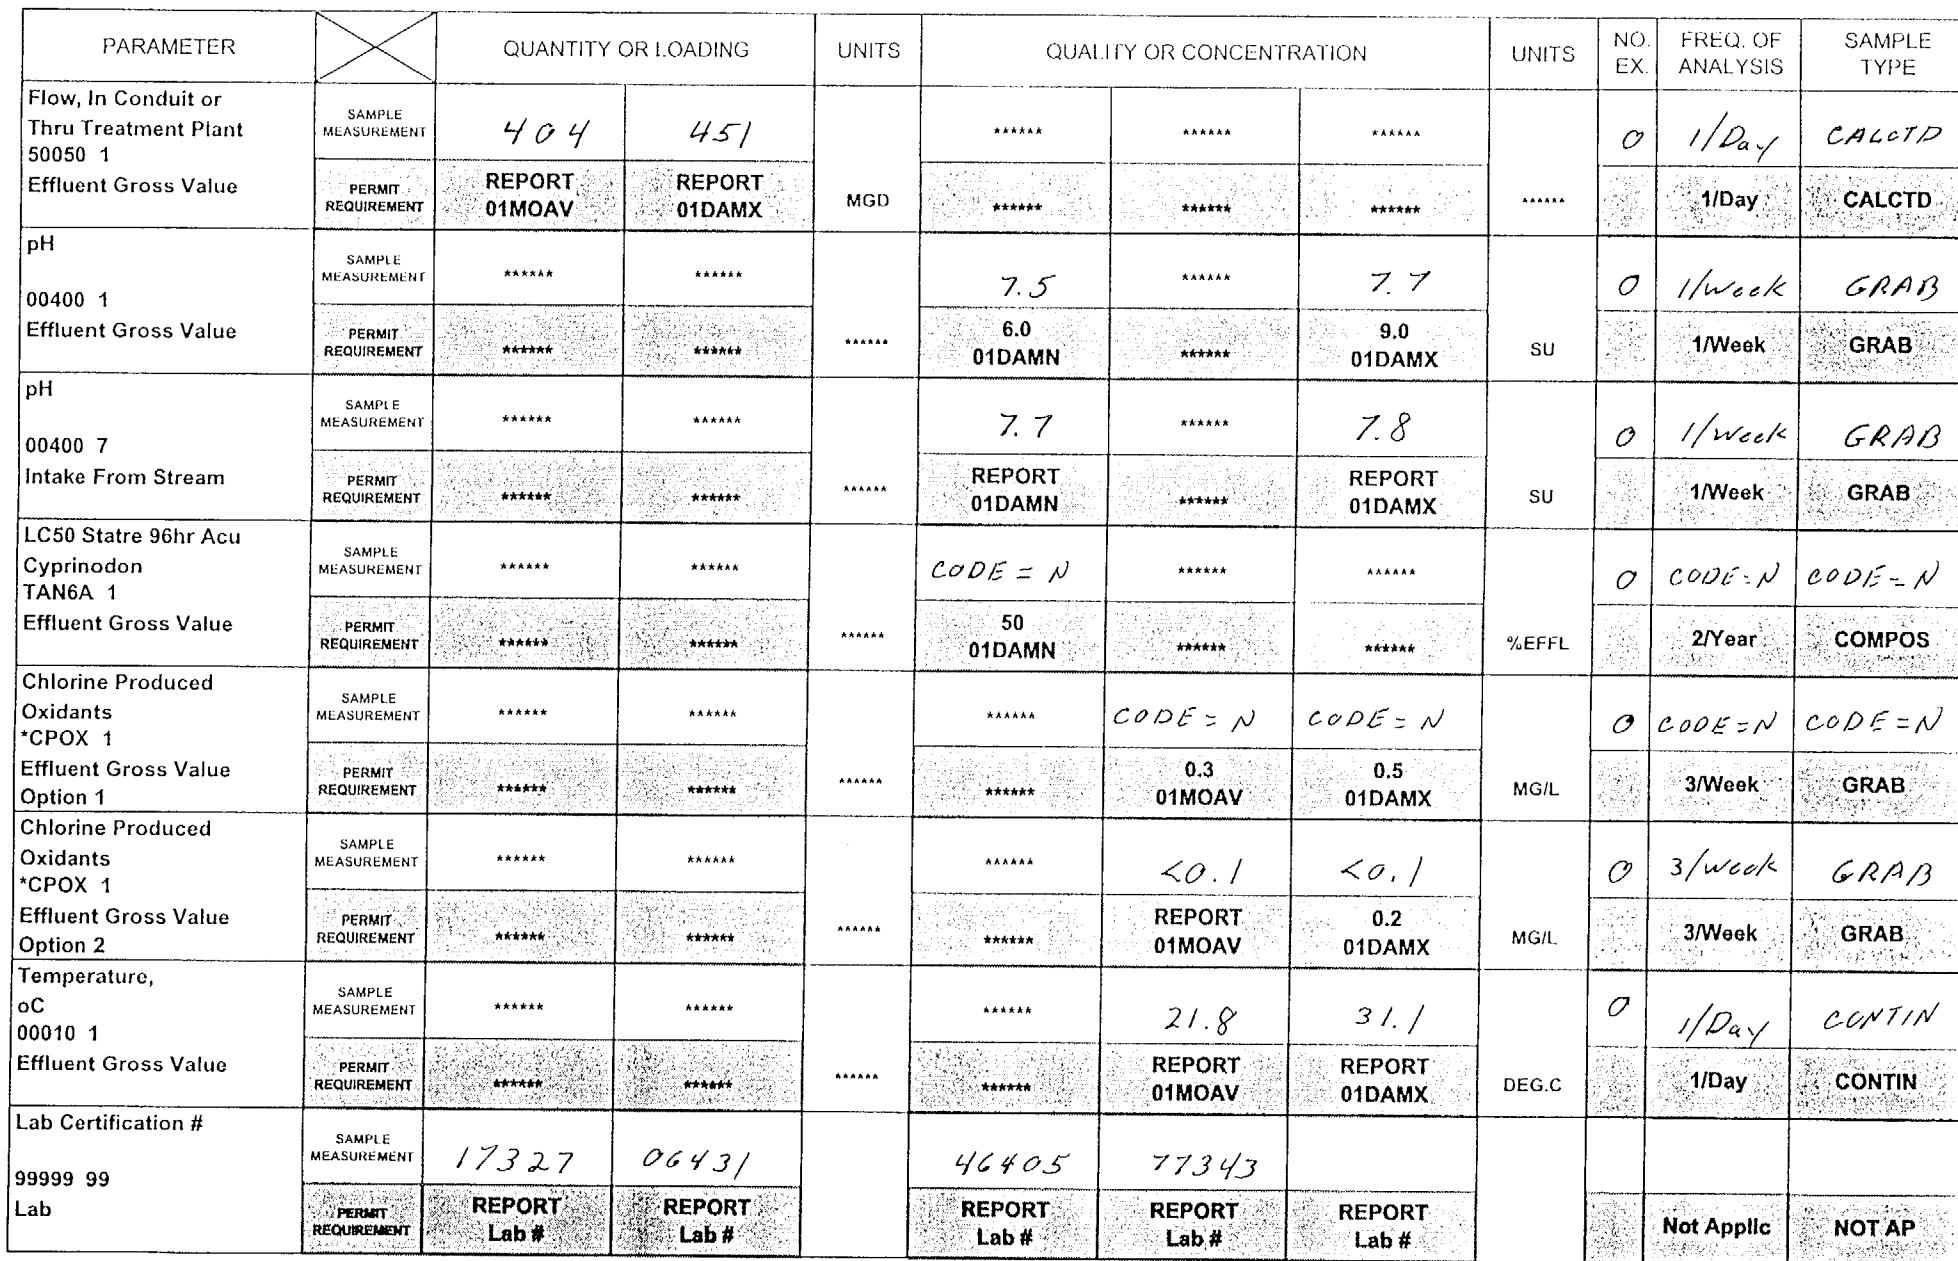 PARAMETER QUANTITY OR LOADING UNITS QUALITY OR CONCENTRATION UNITS NO. EX. FREQ. OF ANALYSIS SAMPLE TYPE
Flow, In Conduit or
Thru Treatment Plant
50050 1
Effluent Gross Value
SAMPLE MEASUREMENT 404 451 ****** ****** ****** 0 1/Day CALCTD
PERMIT REQUIREMENT REPORT 01MOAV REPORT 01DAMX MGD ****** ****** ****** ****** 1/Day CALCTD
pH
00400 1
Effluent Gross Value
SAMPLE MEASUREMENT ****** ****** 7.5 ****** 7.7 0 1/Week GRAB
PERMIT REQUIREMENT ****** ****** ****** 6.0 01DAMN ****** 9.0 01DAMX SU 1/Week GRAB
pH
00400 7
Intake From Stream
SAMPLE MEASUREMENT ****** ****** 7.7 ****** 7.8 0 1/Week GRAB
PERMIT REQUIREMENT ****** ****** ****** REPORT 01DAMN ****** REPORT 01DAMX SU 1/Week GRAB
LC50 Statre 96hr Acu
Cyprinodon
TAN6A 1
Effluent Gross Value
SAMPLE MEASUREMENT ****** ****** CODE = N ****** ****** 0 CODE = N CODE = N
PERMIT REQUIREMENT ****** ****** ****** 50 01DAMN ****** ****** %EFFL 2/Year COMPOS
Chlorine Produced
Oxidants
*CPOX 1
Effluent Gross Value
Option 1
SAMPLE MEASUREMENT ****** ****** ****** CODE = N CODE = N 0 CODE = N CODE = N
PERMIT REQUIREMENT ****** ****** ****** ****** 0.3 01MOAV 0.5 01DAMX MG/L 3/Week GRAB
Chlorine Produced
Oxidants
*CPOX 1
Effluent Gross Value
Option 2
SAMPLE MEASUREMENT ****** ****** ****** <0.1 <0.1 0 3/Week GRAB
PERMIT REQUIREMENT ****** ****** ****** ****** REPORT 01MOAV 0.2 01DAMX MG/L 3/Week GRAB
Temperature,
oC
00010 1
Effluent Gross Value
SAMPLE MEASUREMENT ****** ****** ****** 21.8 31.1 0 1/Day CONTIN
PERMIT REQUIREMENT ****** ****** ****** ****** REPORT 01MOAV REPORT 01DAMX DEG.C 1/Day CONTIN
Lab Certification #
99999 99
Lab
SAMPLE MEASUREMENT 17327 06431 46405 77343
PERMIT REQUIREMENT REPORT Lab # REPORT Lab # REPORT Lab # REPORT Lab # REPORT Lab # Not Applic NOT AP